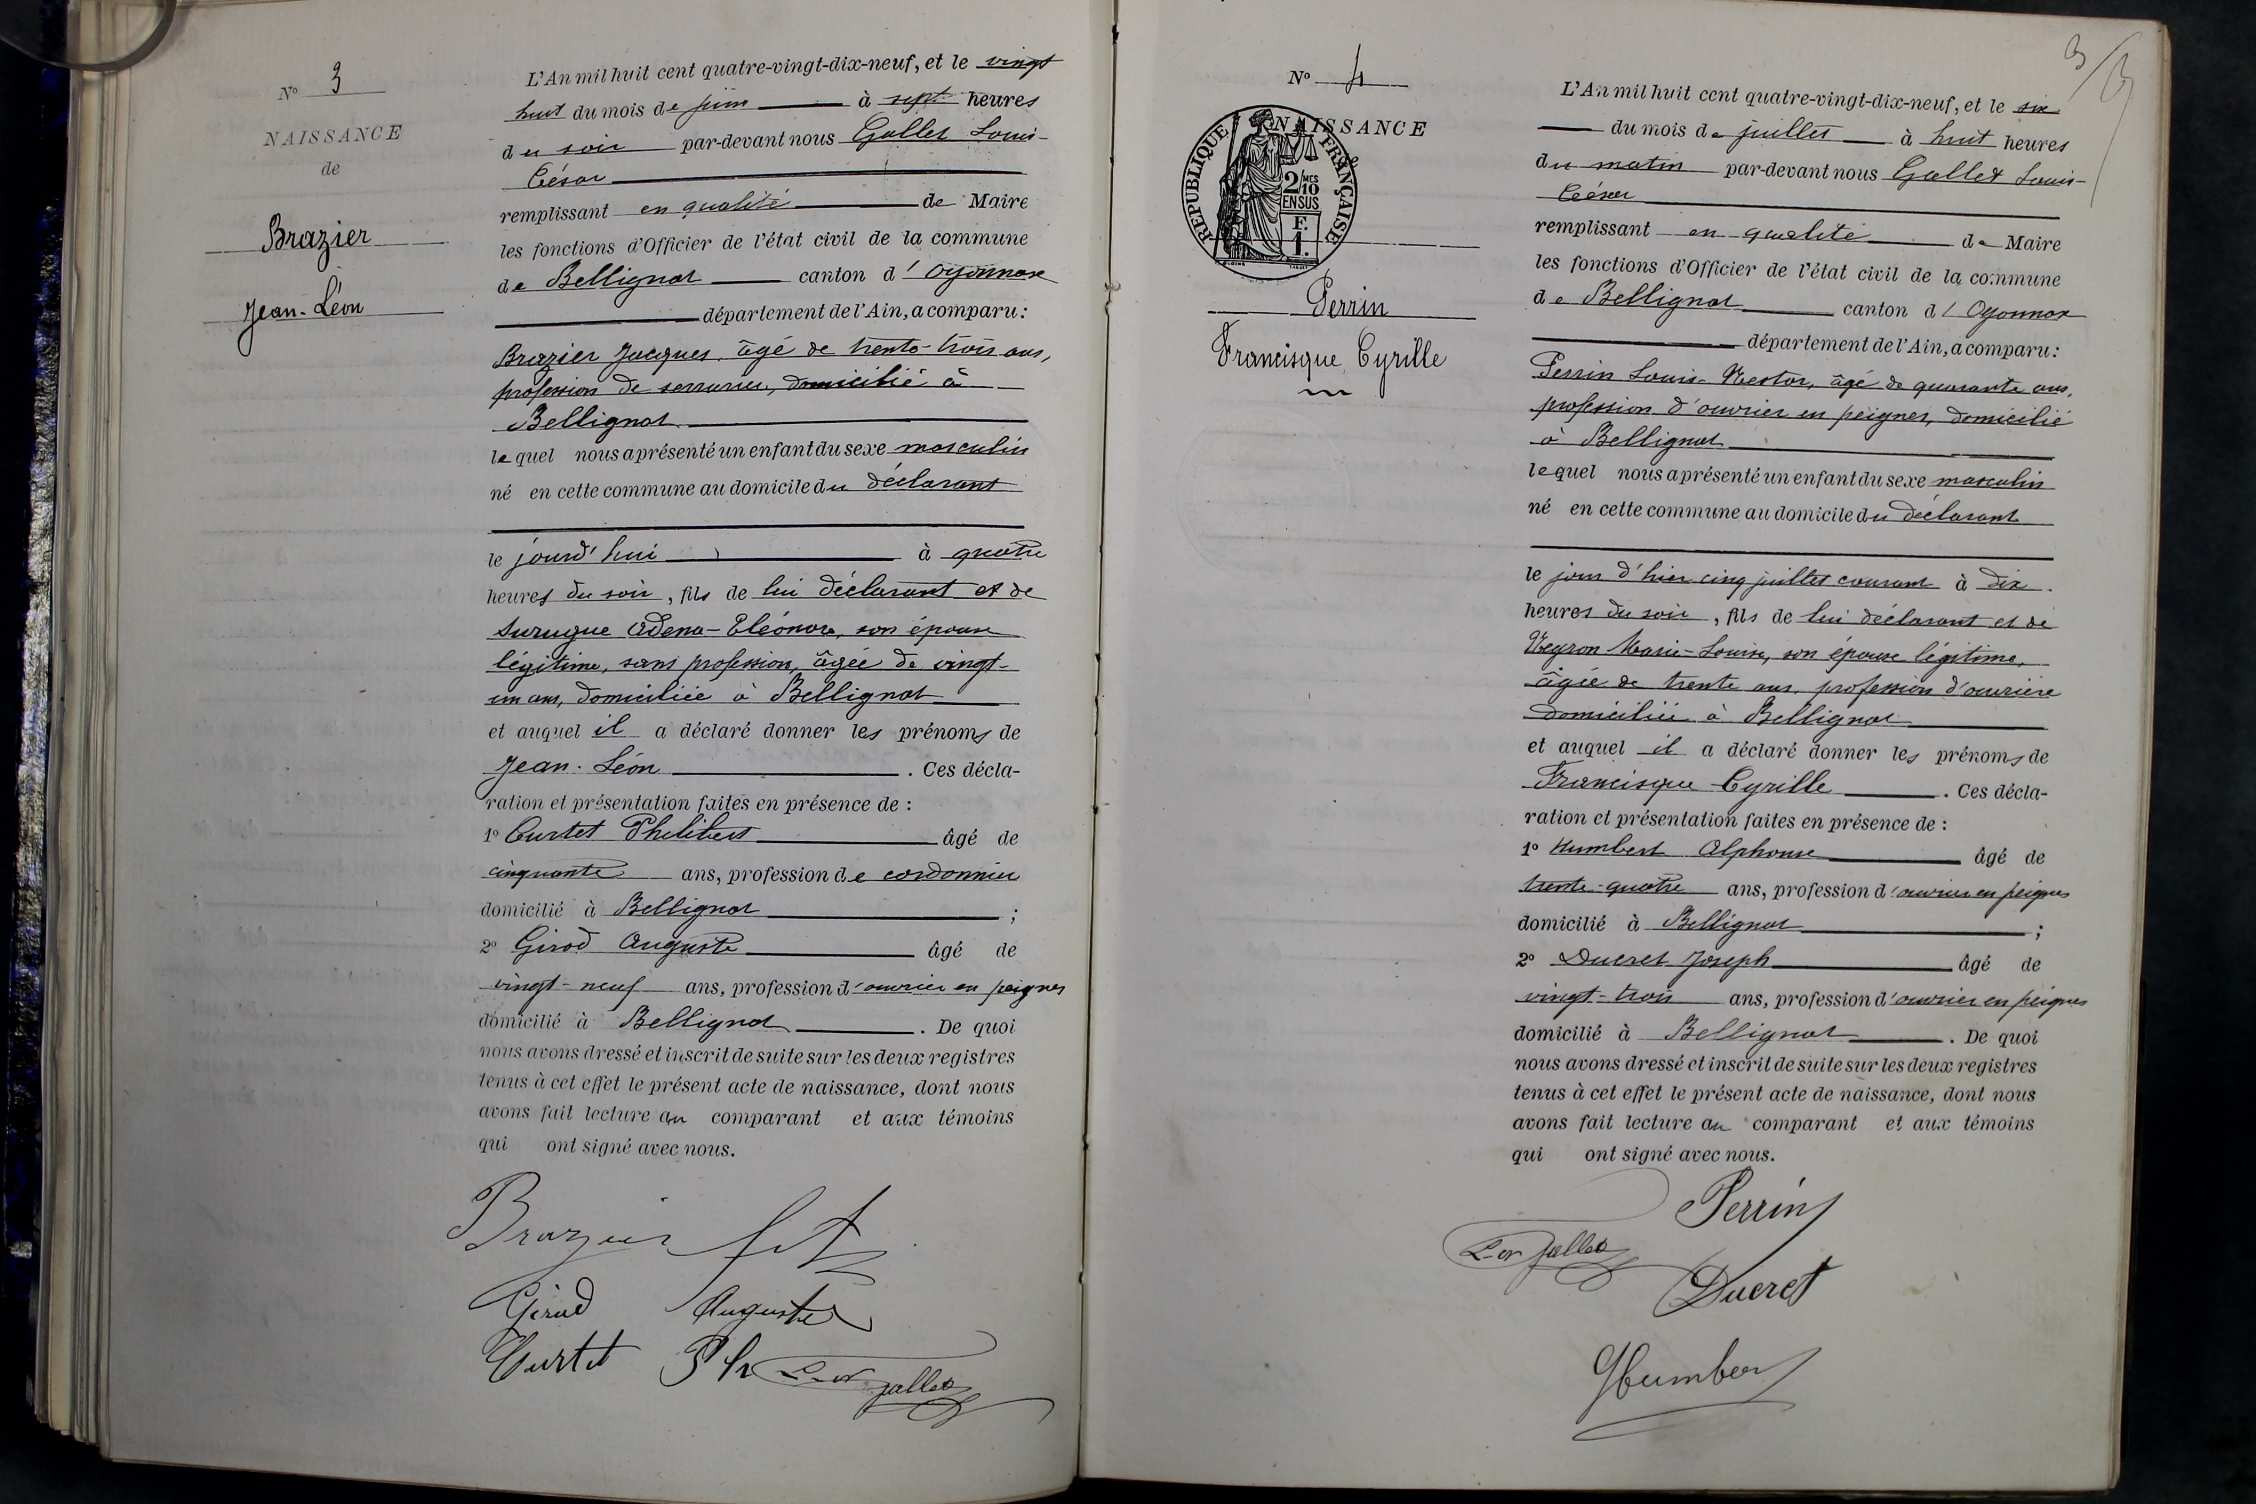 N° 3
NAISSANCE
de
Brazier
Jean-Léon
L'An mil huit cent quatre-vingt-dix-neuf, et le vingt
huit du mois de juin à sept heures
du soir par-devant nous Gallet Louis-
César
remplissant en qualité de Maire
les fonctions d'Officier de l'état civil de la commune
de Bellignat canton d'Oyonnax
département de l'Ain, a comparu :
Brazier Jacques, âgé de trente-trois ans,
profession de serrurier, domicilié à
Bellignat
lequel nous a présenté un enfant du sexe masculin
né en cette commune au domicile du déclarant
le jourd'hui à quatre
heures du soir, fils de lui déclarant et de
Surugue Adena-Eléonore, son épouse
légitime, sans profession, âgée de vingt-
un ans, domiciliée à Bellignat
et auquel il a déclaré donner les prénoms de
Jean-Léon. Ces décla-
ration et présentation faites en présence de :
1° Curtet Philibert âgé de
cinquante ans, profession de cordonnier
domicilié à Bellignat ;
2° Girod Auguste âgé de
vingt-neuf ans, profession d'ouvrier en peignes
domicilié à Bellignat. De quoi
nous avons dressé et inscrit de suite sur les deux registres
tenus à cet effet le présent acte de naissance, dont nous
avons fait lecture au comparant et aux témoins
qui ont signé avec nous.
Brazier
Girod Auguste
Curtet Ph
Gallet
3
N° 4
NAISSANCE
RÉPUBLIQUE FRANÇAISE
2/10 MES
EN SUS
F.
1.
Perrin
Francisque Cyrille
L'An mil huit cent quatre-vingt-dix-neuf, et le six
du mois de juillet à huit heures
du matin par-devant nous Gallet Louis-
César
remplissant en qualité de Maire
les fonctions d'Officier de l'état civil de la commune
de Bellignat canton d'Oyonnax
département de l'Ain, a comparu :
Perrin Louis-Nestor, âgé de quarante ans,
profession d'ouvrier en peignes, domicilié
à Bellignat
lequel nous a présenté un enfant du sexe masculin
né en cette commune au domicile du déclarant
le jour d'hier cinq juillet courant à dix
heures du soir, fils de lui déclarant et de
Neyron Marie-Louise, son épouse légitime,
âgée de trente ans, profession d'ouvrière
domiciliée à Bellignat
et auquel il a déclaré donner les prénoms de
Francisque Cyrille. Ces décla-
ration et présentation faites en présence de :
1° Humbert Alphonse âgé de
trente-quatre ans, profession d'ouvrier en peignes
domicilié à Bellignat ;
2° Ducret Joseph âgé de
vingt-trois ans, profession d'ouvrier en peignes
domicilié à Bellignat. De quoi
nous avons dressé et inscrit de suite sur les deux registres
tenus à cet effet le présent acte de naissance, dont nous
avons fait lecture au comparant et aux témoins
qui ont signé avec nous.
Perrin
Gallet
Ducret
Humbert